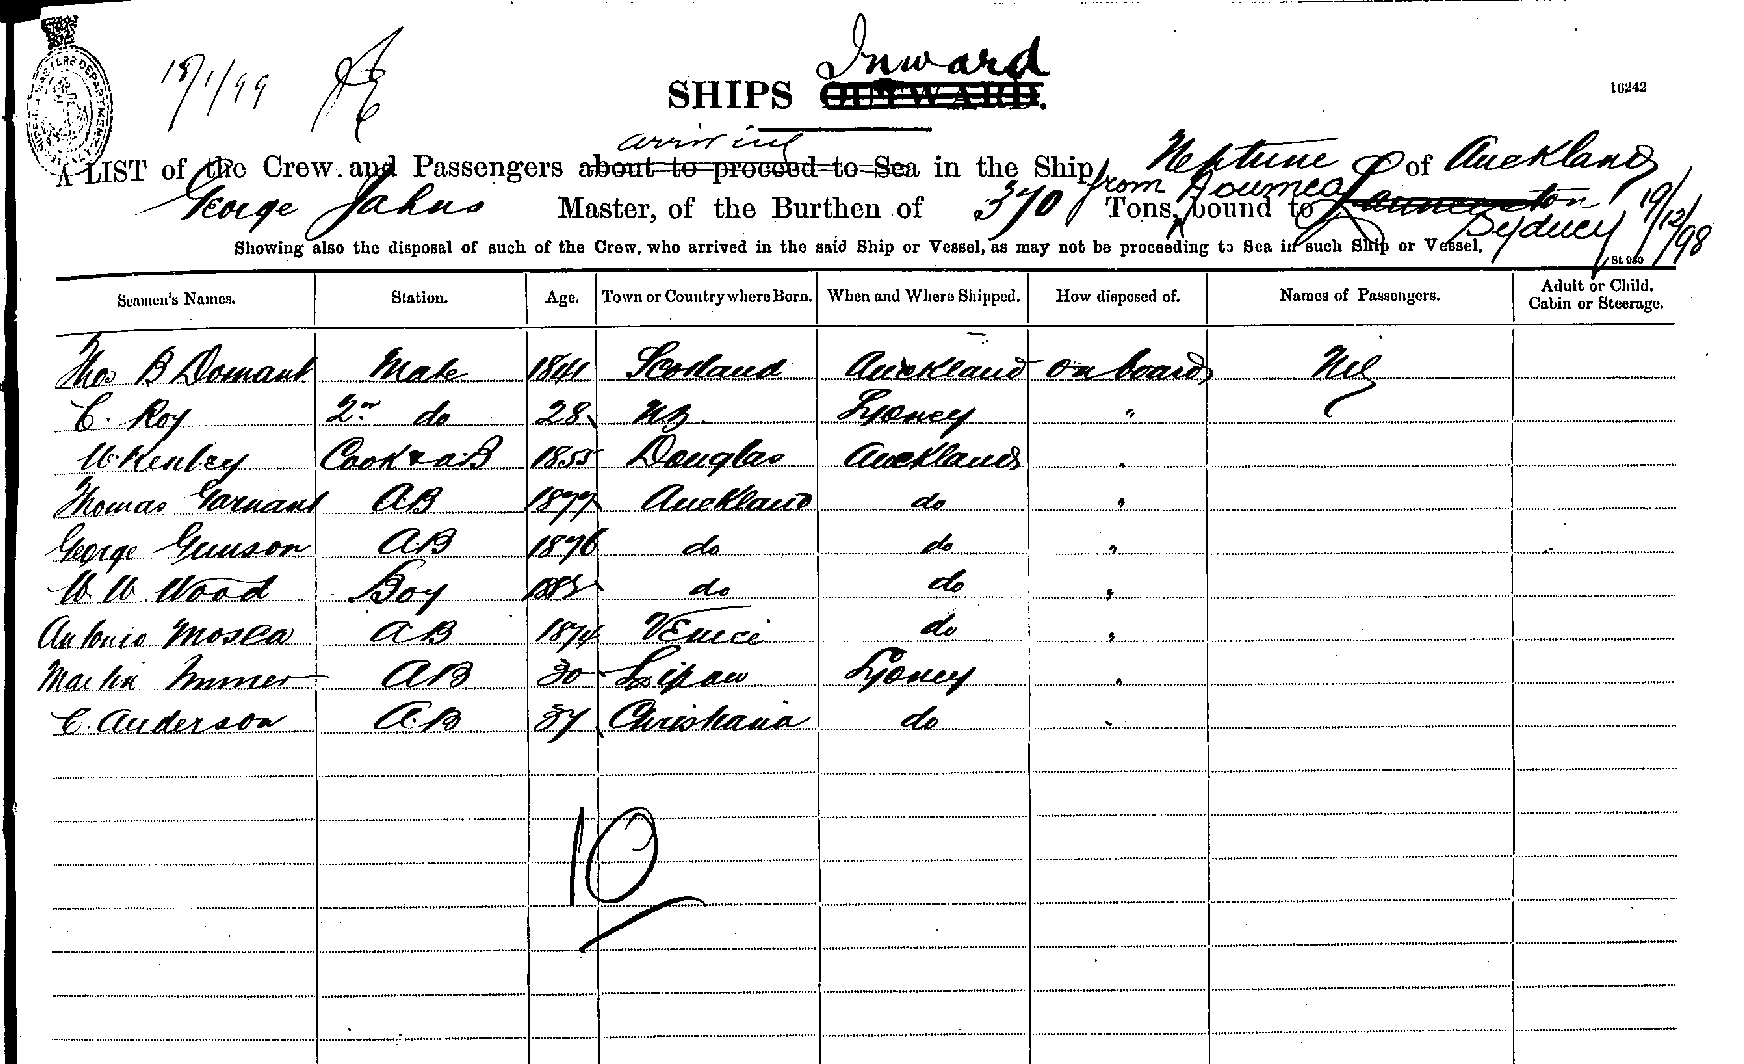 18/1/99
Inward
SHIPS OUTWARD.
16242
arriving
A LIST of the Crew and Passengers about to proceed to Sea in the Ship Neptune of Auckland
from Noumea
George Jahns Master, of the Burthen of 370 Tons, bound to Launceston 19/12/98
Sydney
Showing also the disposal of such of the Crew, who arrived in the said Ship or Vessel, as may not be proceeding to Sea in such Ship or Vessel.
Seamen's Names. Station. Age. Town or Country where Born. When and Where Shipped. How disposed of. Names of Passengers. Adult or Child. Cabin or Steerage.
Thos B Dornant Mate 1841 Scotland Auckland on board Nil
C. Roy 2nd do 28 NZ. Sydney "
W Kenley Cook & AB 1855 Douglas Auckland "
Thomas Garnant AB 1877 Auckland do "
George Gunson AB 1876 do do "
W W Wood Boy do do "
Antonio Mosca AB 1874 Venice do "
Martin AB 30 Lipaw Sydney "
C. Anderson AB 37 Christiania do "
10